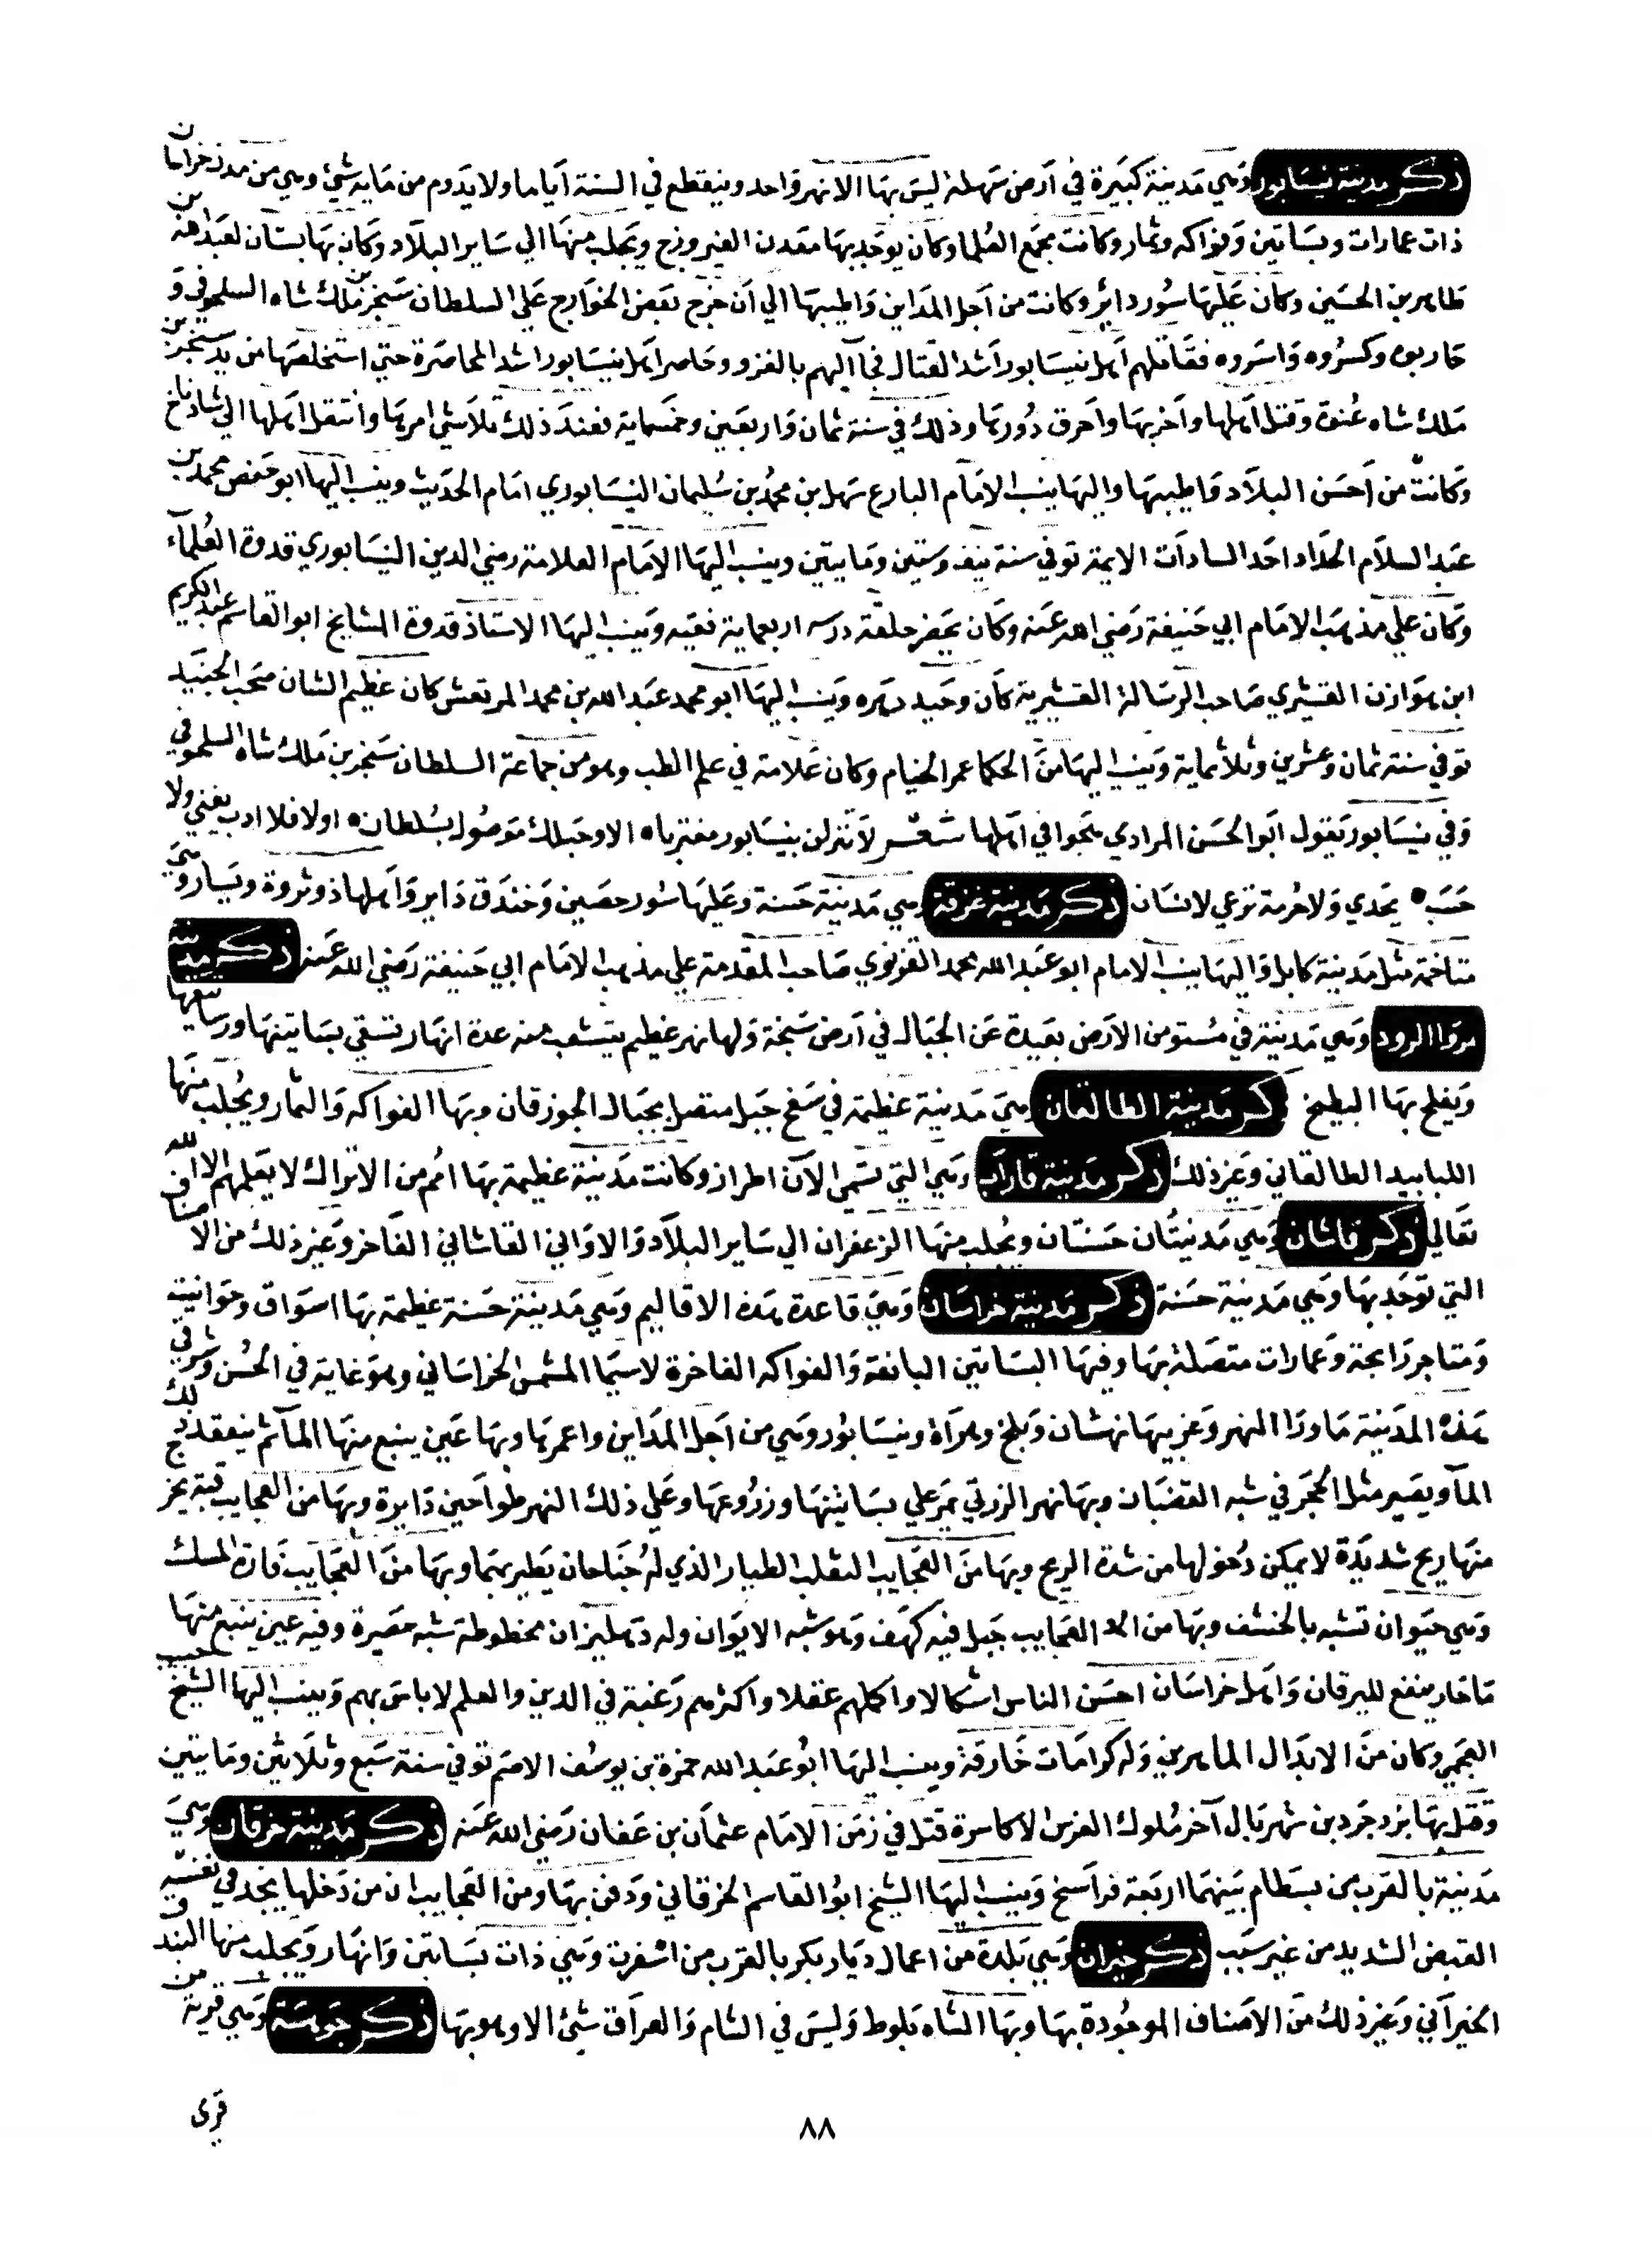 ذكر مدينة نيسابور وهي مدينة كبيرة في أرض سهلة ليس بها الا نهر واحد وينقطع في السنة أياما ولا يدوم من مايه شيء وهي من مدن خراسان
ذات عمارات وبساتين وفواكه وثمار وكانت مجمع العلما وكان يوجد بها معدن الفيروزج ويجلب منها الي ساير البلاد وكان بها بستان لعبد الله بن
طاهر بن الحسين وكان عليها سور داير وكانت من أجل المداين واطيبها الي أن خرج بعض الخوارج علي السلطان سنجر بن ملك شاه السلجوقي و
حاربوه وكسروه واسروه فقاتلهم اهل نيسابور أشد القتال فجا اليهم بالغزو وحاصر اهل نيسابور اشد المحاصرة حتي استخلصها من يد سنجر بن
ملك شاه عنوة وقتل اهلها وأخربها وأحرق دورها وذلك في سنة ثمان واربعين وخمسماية فعند ذلك تلاشي امرها وانتقل اهلها الي شاذياخ
وكانت من أحسن البلاد واطيبها واليها ينسب الامام البارع سهل بن محمد بن سليمان النيسابوري امام الحديث وينسب اليها ابو حفص محمد بن
عبد السلام الحداد احد السادات الايمة توفي سنة نيف وستين ومايتين وينسب اليها الامام العلامة رضي الدين النيسابوري قدوة العلماء
وكان علي مذهب الامام ابي حنيفة رضي الله عنه وكان يحضر حلقة درسه اربعماية فقيه وينسب اليها الاستاذ قدوة المشايخ ابو القاسم عبد الكريم
ابن هوازن القشيري صاحب الرسالة القشيرية كان وحيد دهره وينسب اليها ابو محمد عبد الله بن محمد المرتعش كان عظيم الشان صحب الجنيد
توفي سنة ثمان وعشرين وثلاثماية وينسب اليها من الحكما عمر الخيام وكان علامة في علم الطب وهو من جماعة السلطان سنجر بن ملك شاه السلجوقي
وفي نيسابور يقول ابو الحسن المرادي يهجوا في اهلها شعر لا تنزلن بنيسابور مغتربا • الا وحبلك موصول بسلطان • اولا فلا ادب يغني ولا
حسب • يجدي ولا حرمة ترعي لانسان ذكر مدينة غزقة وهي مدينة حسنة وعليها سور حصين وخندق داير واهلها ذو ثروة ويسار وهي
متاخمة مثل مدينة كابل واليها ينسب الامام ابو عبد الله محمد الغزنوي صاحب المقدمة علي مذهب الامام ابي حنيفة رضي الله عنه ذكر مدينة
مروا الرود وهي مدينة في مستو من الارض بعيدة عن الجبال في أرض سبخة ولها نهر عظيم يتشعب منه عدة انهار تسقي بساتينها ورساتيقها
ويفلح بها البطيخ ذكر مدينة الطالقان وهي مدينة عظيمة في سفح جبل متصل بجبال الجوزقان وبها الفواكه والثمار ويجلب منها
اللبابيد الطالقاني وغير ذلك ذكر مدينة فاراب وهي التي تسمي الآن اطراز وكانت مدينة عظيمة بها امم من الاتراك لا يعلمهم الا الله
تعالي ذكر قاشان وهي مدينتان حسنتان ويجلب منها الزعفران الي ساير البلاد والاواني القاشاني الفاخر وغير ذلك من الاصناف
التي توجد بها وهي مدينة حسنة ذكر مدينة خراسان وهي قاعدة هذه الاقاليم وهي مدينة حسنة عظيمة بها اسواق وحوانيت
ومتاجر رابحة وعمارات متصلة بها وفيها البساتين اليانعة والفواكه الفاخرة لاسيما المشمش الخراساني وهو غاية في الحسن وشرقي
هذه المدينة ماورا النهر وغربيها نهشان وبلخ وهراة ونيسابور وهي من أجل المداين واعمرها وبها عين ينبع منها الما ثم ينعقد ذلك
الما ويصير مثل الحجر في شبه القضبان وبها نهر الزرتي يمر علي بساتينها وزروعها وعلي ذلك النهر طواحين دايرة وبها من العجايب قبة يخرج
منها ريح شديدة لا يمكن دخولها من شدة الريح وبها من العجايب الثعلب الطيار الذي له جناحان يطير بهما وبها من العجايب فارة المسك
وهي حيوان تشبه بالخشف وبها من العجايب جبل فيه كهف وهو شبه الايوان وله دهليزان مخطوطة شبه حصيرة وفيه عين ينبع منها
ما حار ينفع لليرقان واهل خراسان احسن الناس اشكالا واكملهم عقلا واكثرهم رغبة في الدين والعلم لا باس بهم وينسب اليها الشيخ حبيب
العجمي وكان من الابدال الماهرين وله كرامات خارقة وينسب اليها ابو عبد الله حمزة بن يوسف الاصم توفي سنة سبع وثلاثين ومايتين
وقتل بها يزدجرد بن شهريال آخر ملوك الفرس الاكاسرة قتل في زمن الامام عثمان بن عفان رضي الله عنه ذكر مدينة خرقان وهي
مدينة بالقرب من بسطام بينهما اربعة فراسخ وينسب اليها الشيخ ابو القاسم الخرقاني ودفن بها ومن العجايب ان من دخلها يجد في نفسه
القبض الشديد من غير سبب ذكر خيزان وهي بلدة من اعمال ديار بكر بالقرب من اشفرت وهي ذات بساتين وانهار ويجلب منها البندق
الخيزاني وغير ذلك من الاصناف الموجودة بها وبها الشاه بلوط وليس في الشام والعراق شئ الا وهو بها ذكر وهي قرية من
قرى
٨٨